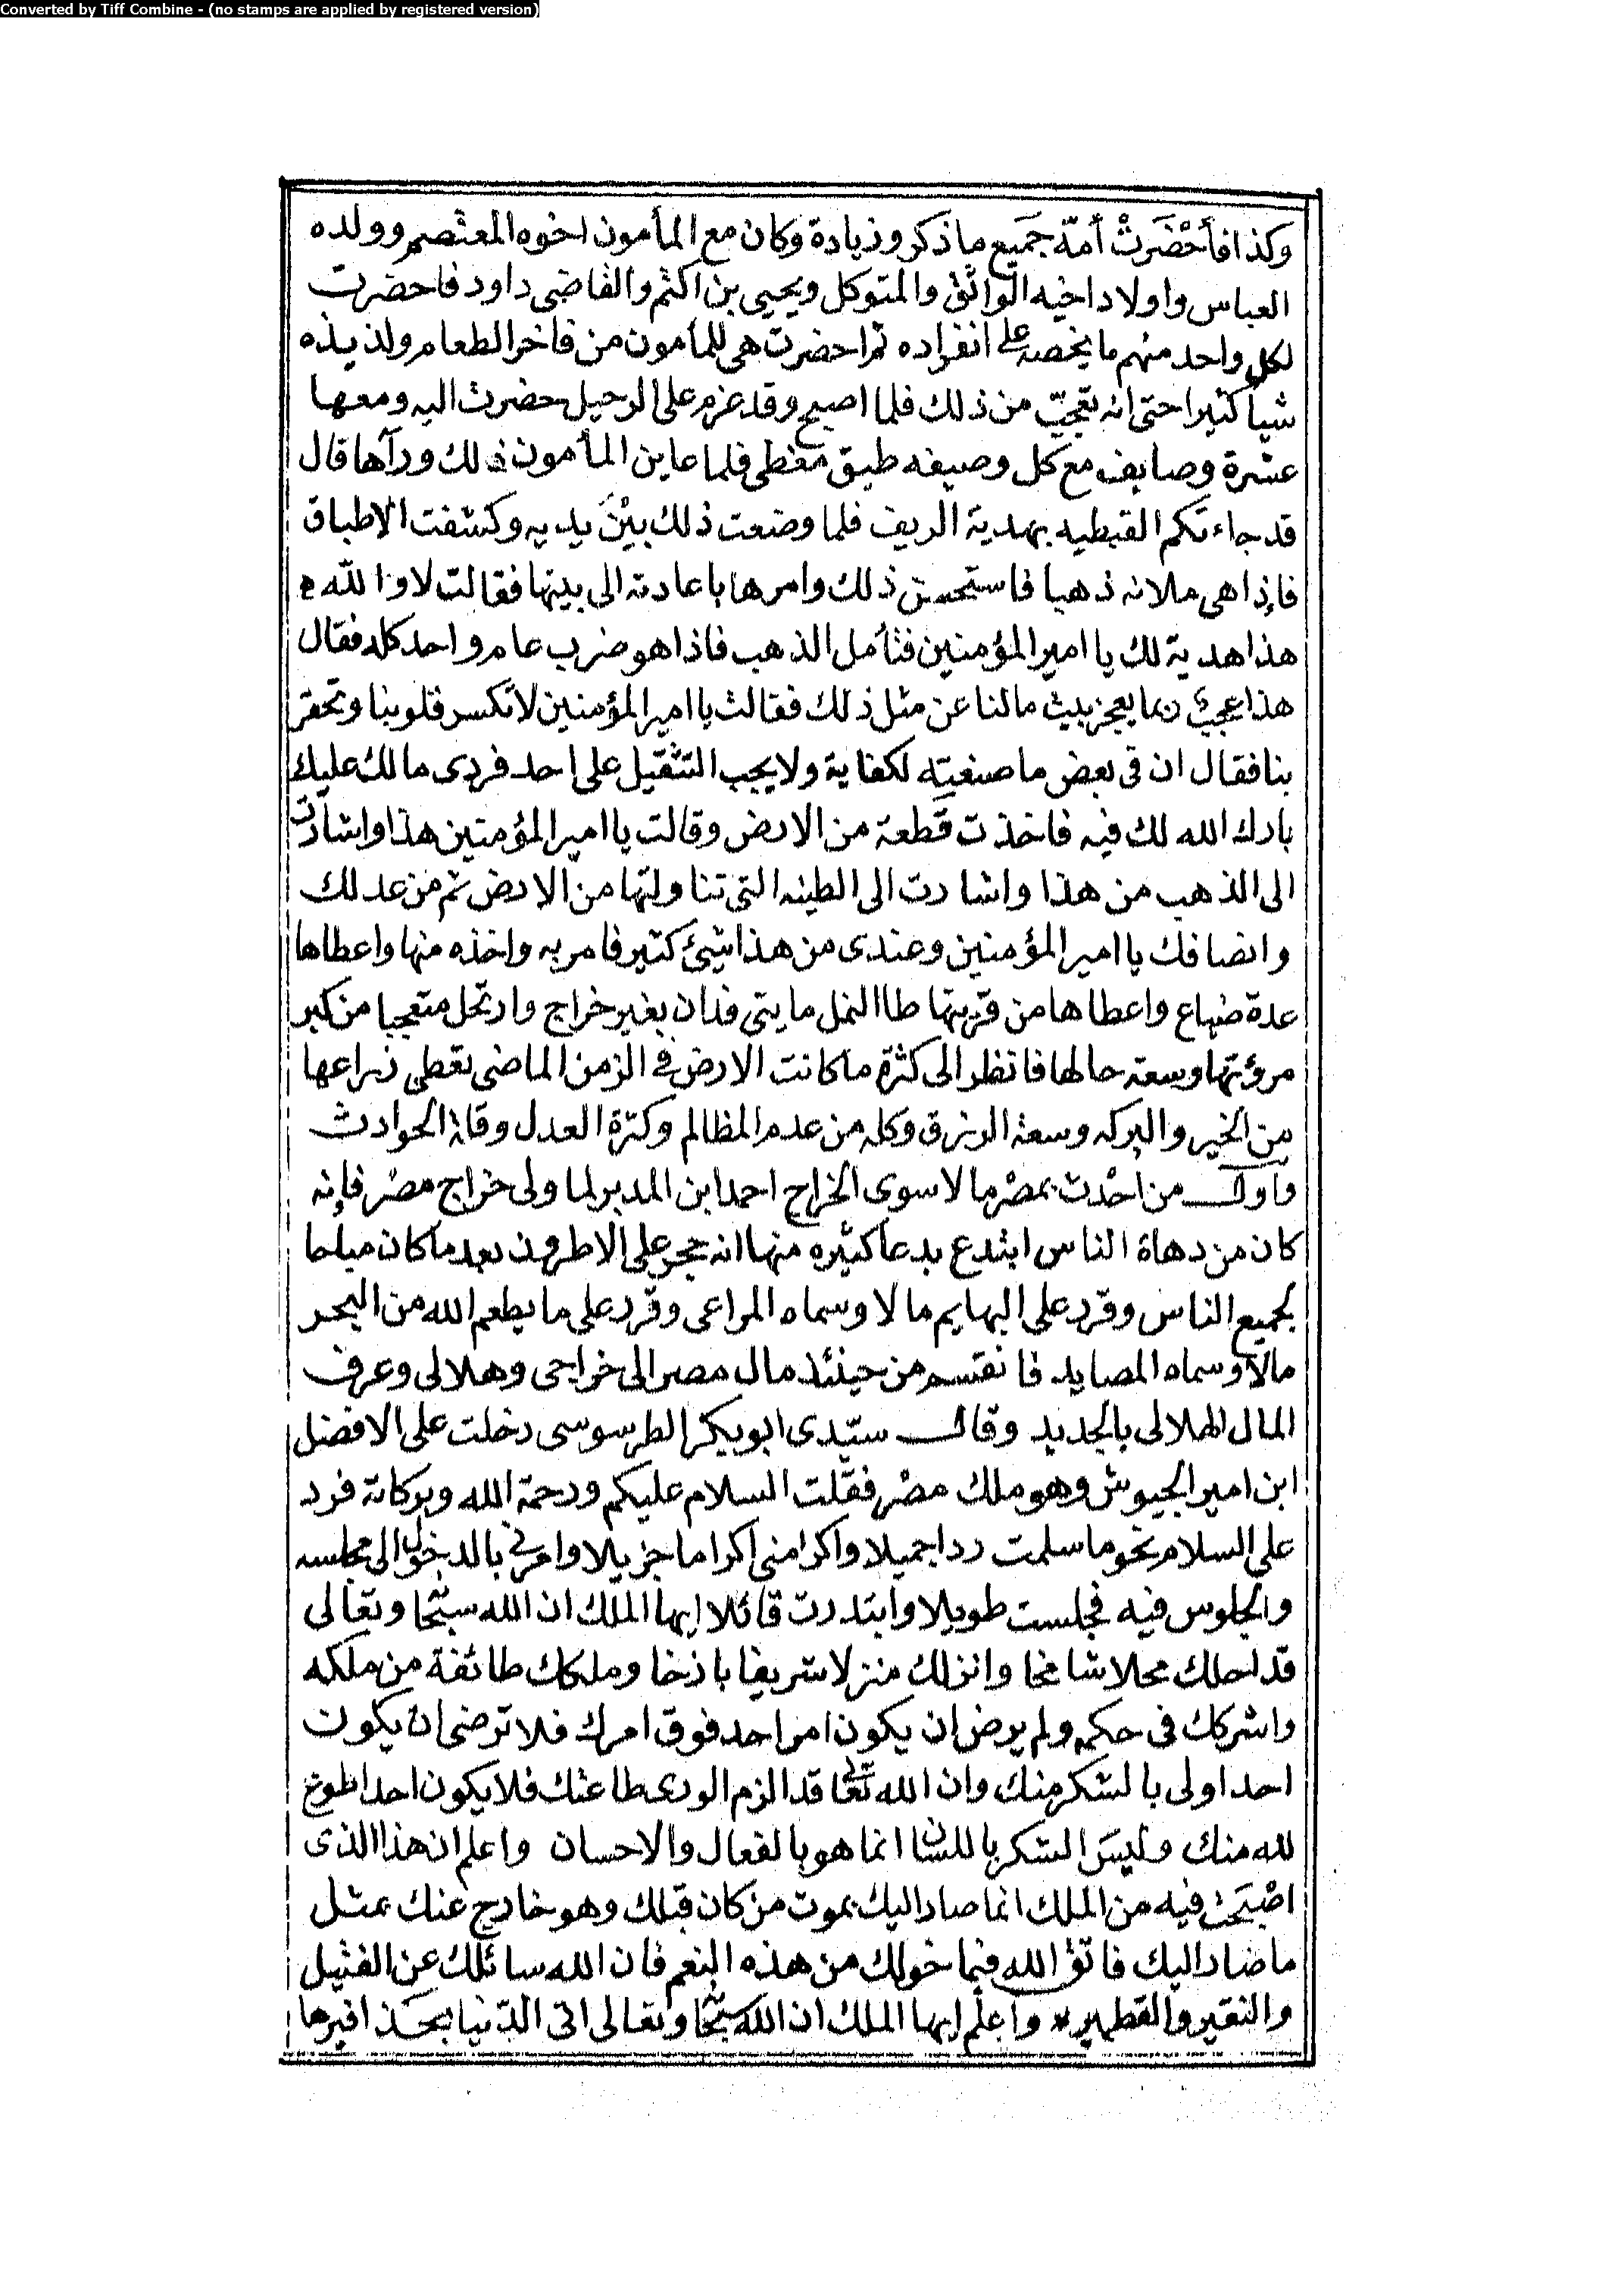 Converted by Tiff Combine - (no stamps are applied by registered version)
وكذا فأحْضَرَتْ أمّه جَميع ما ذكر وزيادة وكان مع المأمون اخوه المعتصم وولده
العباس واولاد اخيه الواثق والمتوكل ويحيى بن اكثم والقاضى داود فاحضرت
لكل واحد منهم ما يخصه على انفراده ثم احضرت هى للمأمون من فاخر الطعام ولذيذه
شيأ كثيرا حتى انه تعجبّ من ذلك فلما اصبح وقد عزم على الرحيل حضرت اليه ومعها
عشرة وصايف مع كل وصيفه طبق مغطى فلما عاين المأمون ذلك ورآها قال
قد جاءتكم القبطيه بهدية الريف فلما وضعت ذلك بَيْنَ يديه وكشفت الاطباق
فإذا هى ملانه ذهبا فاستحسن ذلك وامرها باعادته الى بيتها فقالت لا والله
هذا هدية لك يا امير المؤمنين فتأمل الذهب فاذا هو ضرب عام واحد كله فقال
هذا عجيب ربما يعجز بيت مالنا عن مثل ذلك فقالت يا امير المؤمنين لا تكسر قلوبنا وتحقر
بنا فقال ان فى بعض ما صنعتيه لكفاية ولا يجب التثقيل على احد فردى مالك عليك
بارك الله لك فيه فاخذت قطعة من الارض وقالت يا امير المؤمنين هذا واشارت
الى الذهب من هذا واشارت الى الطينه التى تناولتها من الارض ثم من عدلك
وانصافك يا امير المؤمنين وعندى من هذا شئ كثير فامر به واخذه منها واعطاها
عدة ضياع واعطاها من قريتها طاا النمل مايتى فدان بغير خراج وارتحل متعجبا من كبر
مروءتها وسعة حالها فانظر الى كثرة ما كانت الارض فى الزمن الماضى تعطى زراعها
من الخير والبركه وسعة الرزق وكله من عدم المظالم وكثرة العدل وقلة الحوادث
وأول من احْدث بمصْر مالا سوى الخراج احمد ابن المدبر لما ولى خراج مصْر فإنه
كان من دهاة الناس ابتدع بدعا كثيره منها انه حجر على الاطرون بعد ما كان مباحا
لجميع الناس وقرر على البهايم مالا وسماه المراعى وقرر على ما يطعم الله من البحر
مالا وسماه المصايد فانقسم من حينئذ مال مصر الى خراجى وهلالى وعرف
المال الهلالى بالجديد وقال سيّدى ابو بكر الطرسوسى دخلت على الافضل
ابن امير الجيوش وهو ملك مصْر فقلت السلام عليكم ورحمة الله وبركاته فرد
على السلام نحو ما سلمت ردا جميلا واكرامنى اكراما جزيلا وامرنى بالدخول الى مجلسه
والجلوس فيه فجلست طويلا وابتدرت قائلا ايها الملك ان الله سبحا وتعالى
قد احلك محلا شامخا وانزلك منزلا شريفا باذخا وملكك طائفة من ملكه
واشركك فى حكمه ولم يرض ان يكون امر احد فوق امرك فلا ترضى ان يكون
احد اولى بالشكر منك وان الله تعالى قد الزم الورى طاعتك فلا يكون احد اطوع
لله منك وليسَ الشكر باللسان انما هو بالفعال والاحسان واعلم ان هذا الذى
اصْبَحْت فيه من الملك انما صار اليك بموت من كان قبلك وهو خارج عنك بمثل
ما صار اليك فاتق الله فيما خولك من هذه النعم فان الله سائلك عن الفتيل
والنقير والقطمير * واعلم ايها الملك ان الله سبحا وتعالى اتى الدّنيا بحذافيرها